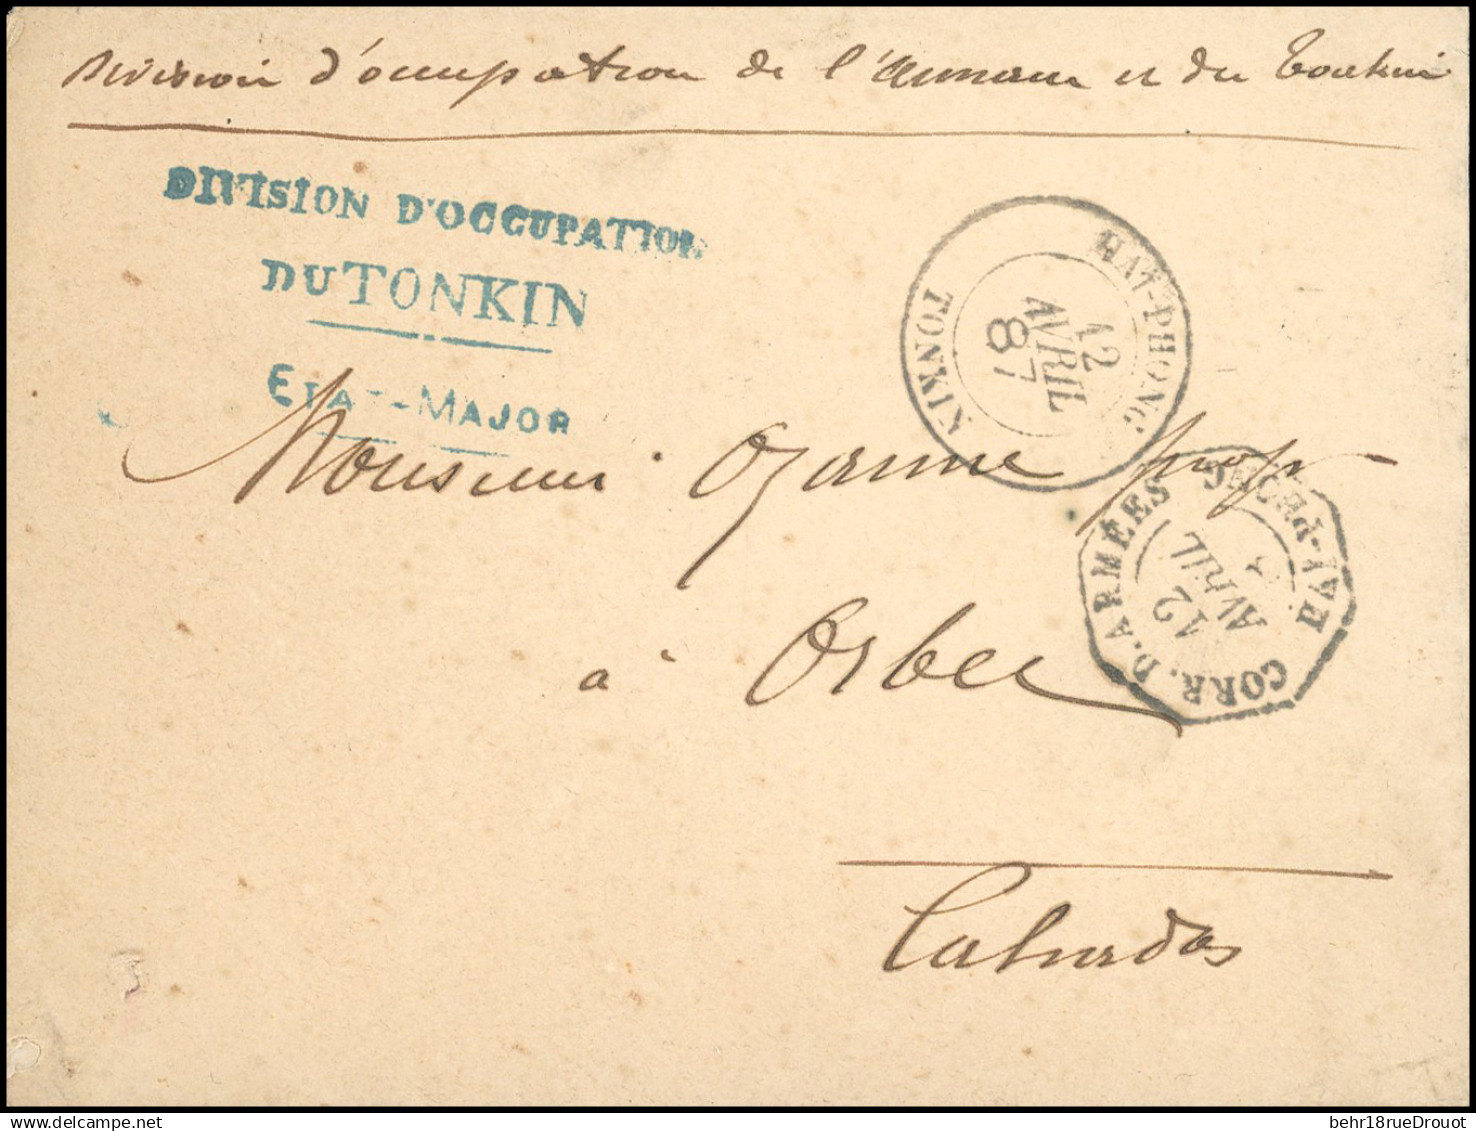 Division d'occupation de l'Annam et du Tonkin
DIVISION D'OCCUPATION
DU TONKIN
ETAT-MAJOR
HAÏ-PHONG
12
AVRIL
87
TONKIN
Monsieur Ozanne prop
CORR. D. ARMÉES
HAÏ-PHONG
12
AVRIL
à Orbec
Calvados
behr18rueDrouot